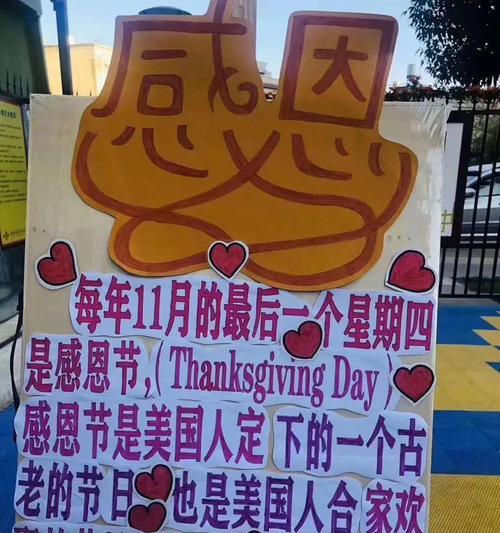 感恩
每年11月的最后一个星期四
是感恩节,(Thanksgiving Day)
感恩节是美国人定下的一个古
老的节日也是美国人合家欢